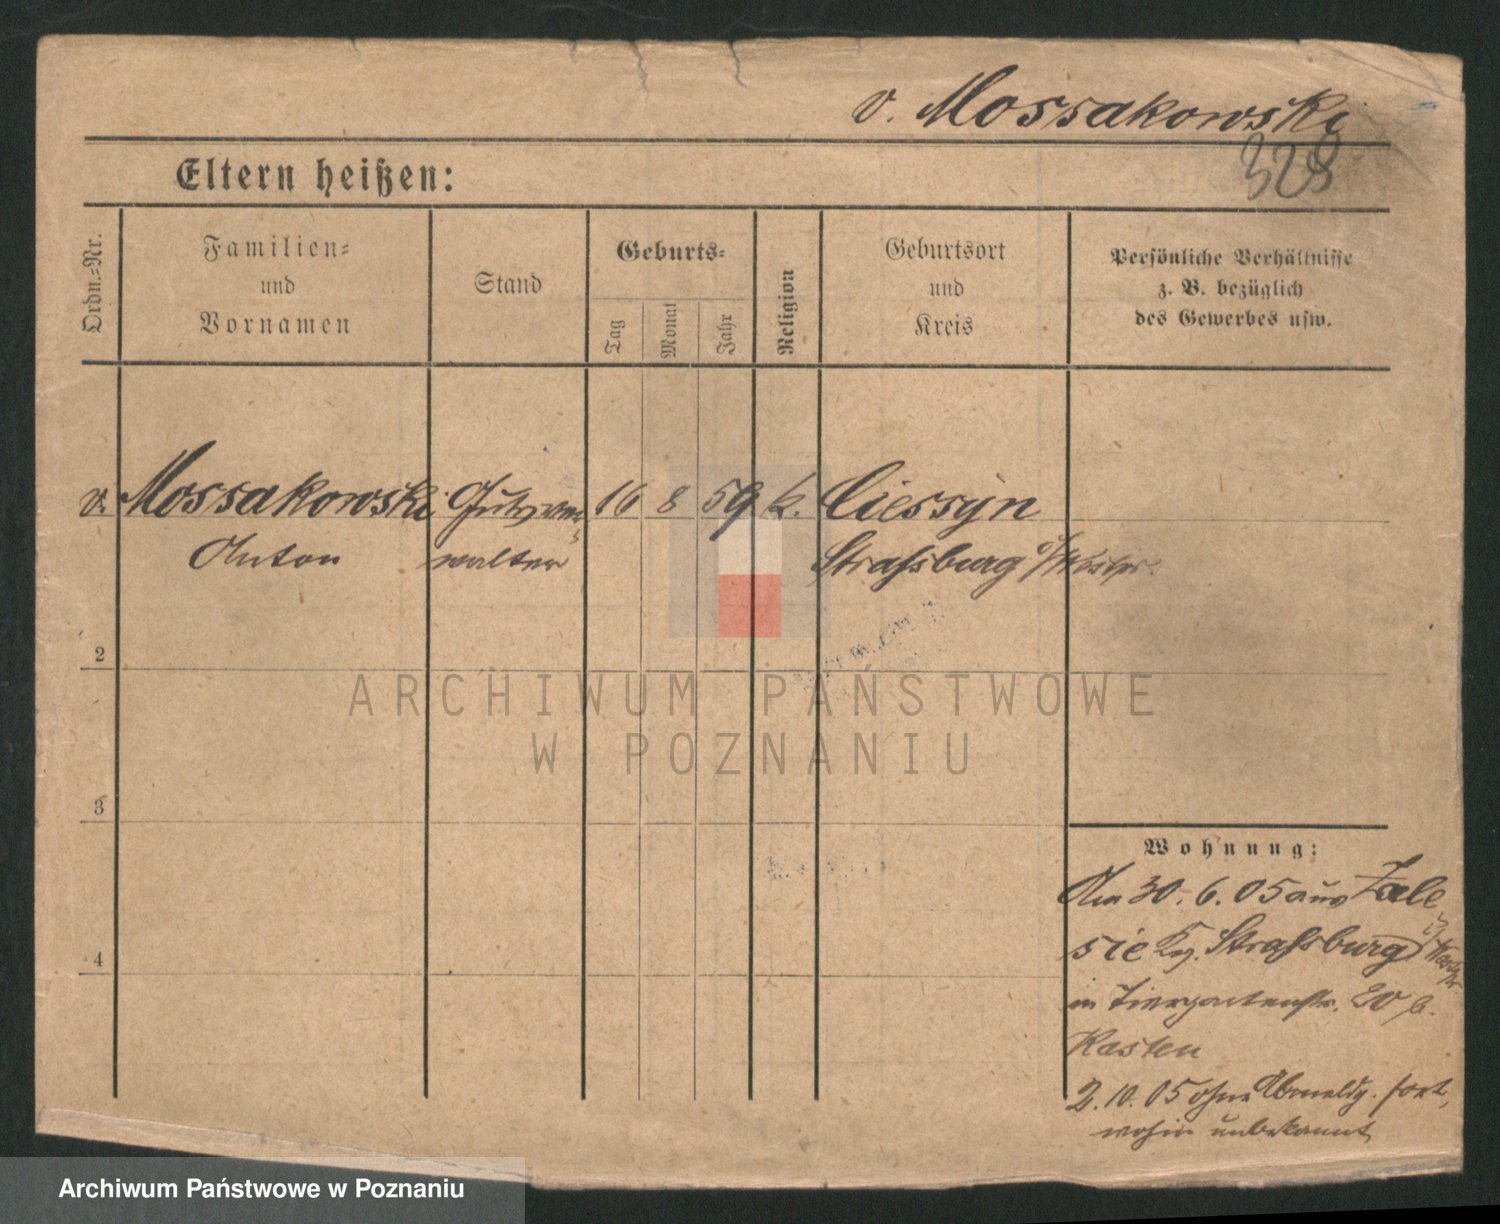 v. Mossakowski
328
Eltern heißen:
Ordn.-Nr.
Familien-
und
Vornamen
Stand
Geburts-
Tag
Monat
Jahr
Religion
Geburtsort
und
Kreis
Persönliche Verhältnisse
z. B. bezüglich
des Gewerbes usw.
v. Mossakowski Gutsver- 16 8 59 k. Ciessyn
Anton walter Strassburg i/Westpr.
2
3
4
Wohnung:
Am 30. 6. 05 aus Zale-
sie Kr. Strassburg i/Westpr.
in Tiergartenstr. 20 b.
Kasten
2. 10. 05 ohne Abmeldg. fort,
wohin unbekannt
ARCHIWUM PAŃSTWOWE
W POZNANIU
Archiwum Państwowe w Poznaniu